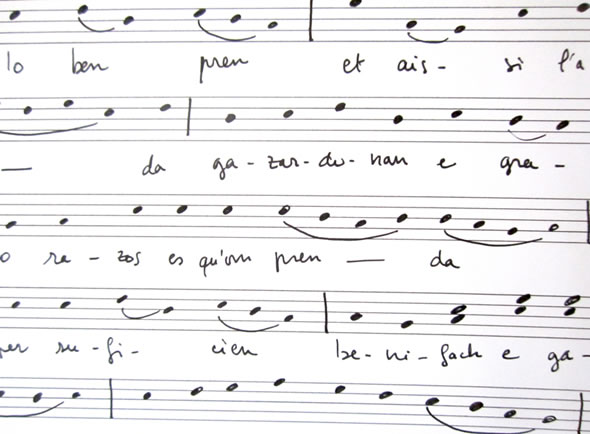 lo ben pren et ais- si l'a
— da ga-zar-do-nan e gra-
o ra-zos es qu'om pren — da
per su-fi- cien be-ni-fach e ga-